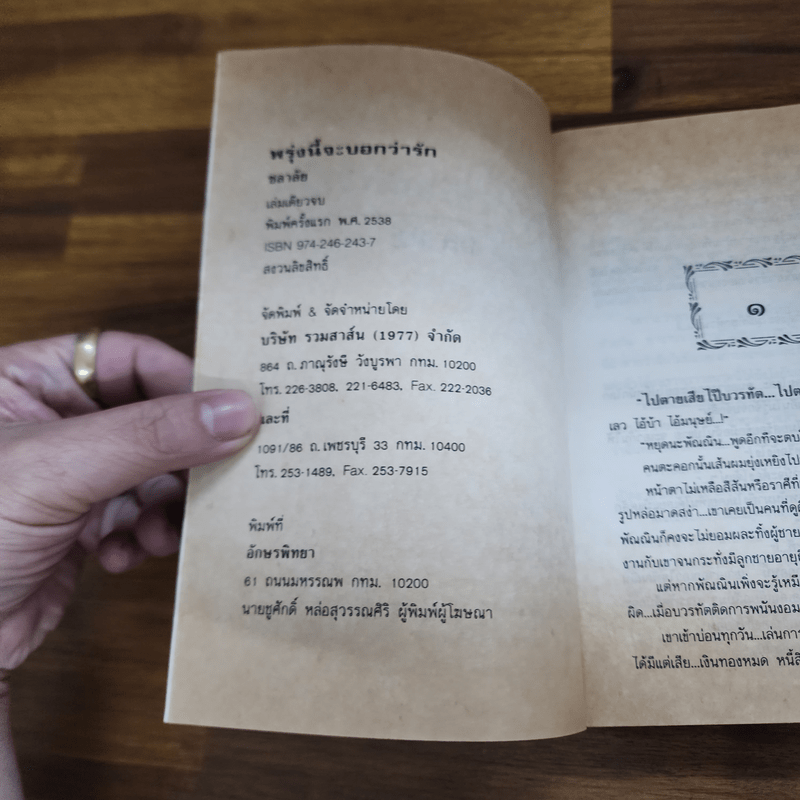 พรุ่งนี้จะบอกว่ารัก
ชลาลัย
เล่มเดียวจบ
พิมพ์ครั้งแรก พ.ศ. 2538
ISBN 974-246-243-7
สงวนลิขสิทธิ์
จัดพิมพ์ & จัดจำหน่ายโดย
บริษัท รวมสาส์น (1977) จำกัด
864 ถ.ภาณุรังษี วังบูรพา กทม. 10200
โทร. 226-3808, 221-6483, Fax. 222-2036
และที่
1091/86 ถ.เพชรบุรี 33 กทม. 10400
โทร. 253-1489, Fax. 253-7915
พิมพ์ที่
อักษรพิทยา
61 ถนนมหรรณพ กทม. 10200
นายชูศักดิ์ หล่อสุวรรณศิริ ผู้พิมพ์ผู้โฆษณา
๑
"ไปตายเสียไป๊บวรทัต...ไปต
เลว ไอ้บ้า ไอ้มนุษย์...!"
"หยุดนะพัณณิน...พูดอีกทีจะตบ
คนตะคอกนั้นเส้นผมยุ่งเหยิงไป
หน้าตาไม่เหลือสีสันหรือราศีที่
รูปหล่อมาดสง่า...เขาเคยเป็นคนที่ดู
พัณณินก็คงจะไม่ยอมผละทิ้งผู้ชาย
งานกับเขาจนกระทั่งมีลูกชายอายุ
แต่หากพัณณินเพิ่งจะรู้เหมื
ผิด...เมื่อบวรทัตติดการพนันงอม
เขาเข้าบ่อนทุกวัน...เล่นการ
ได้มีแต่เสีย...เงินทองหมด หนี้สิ